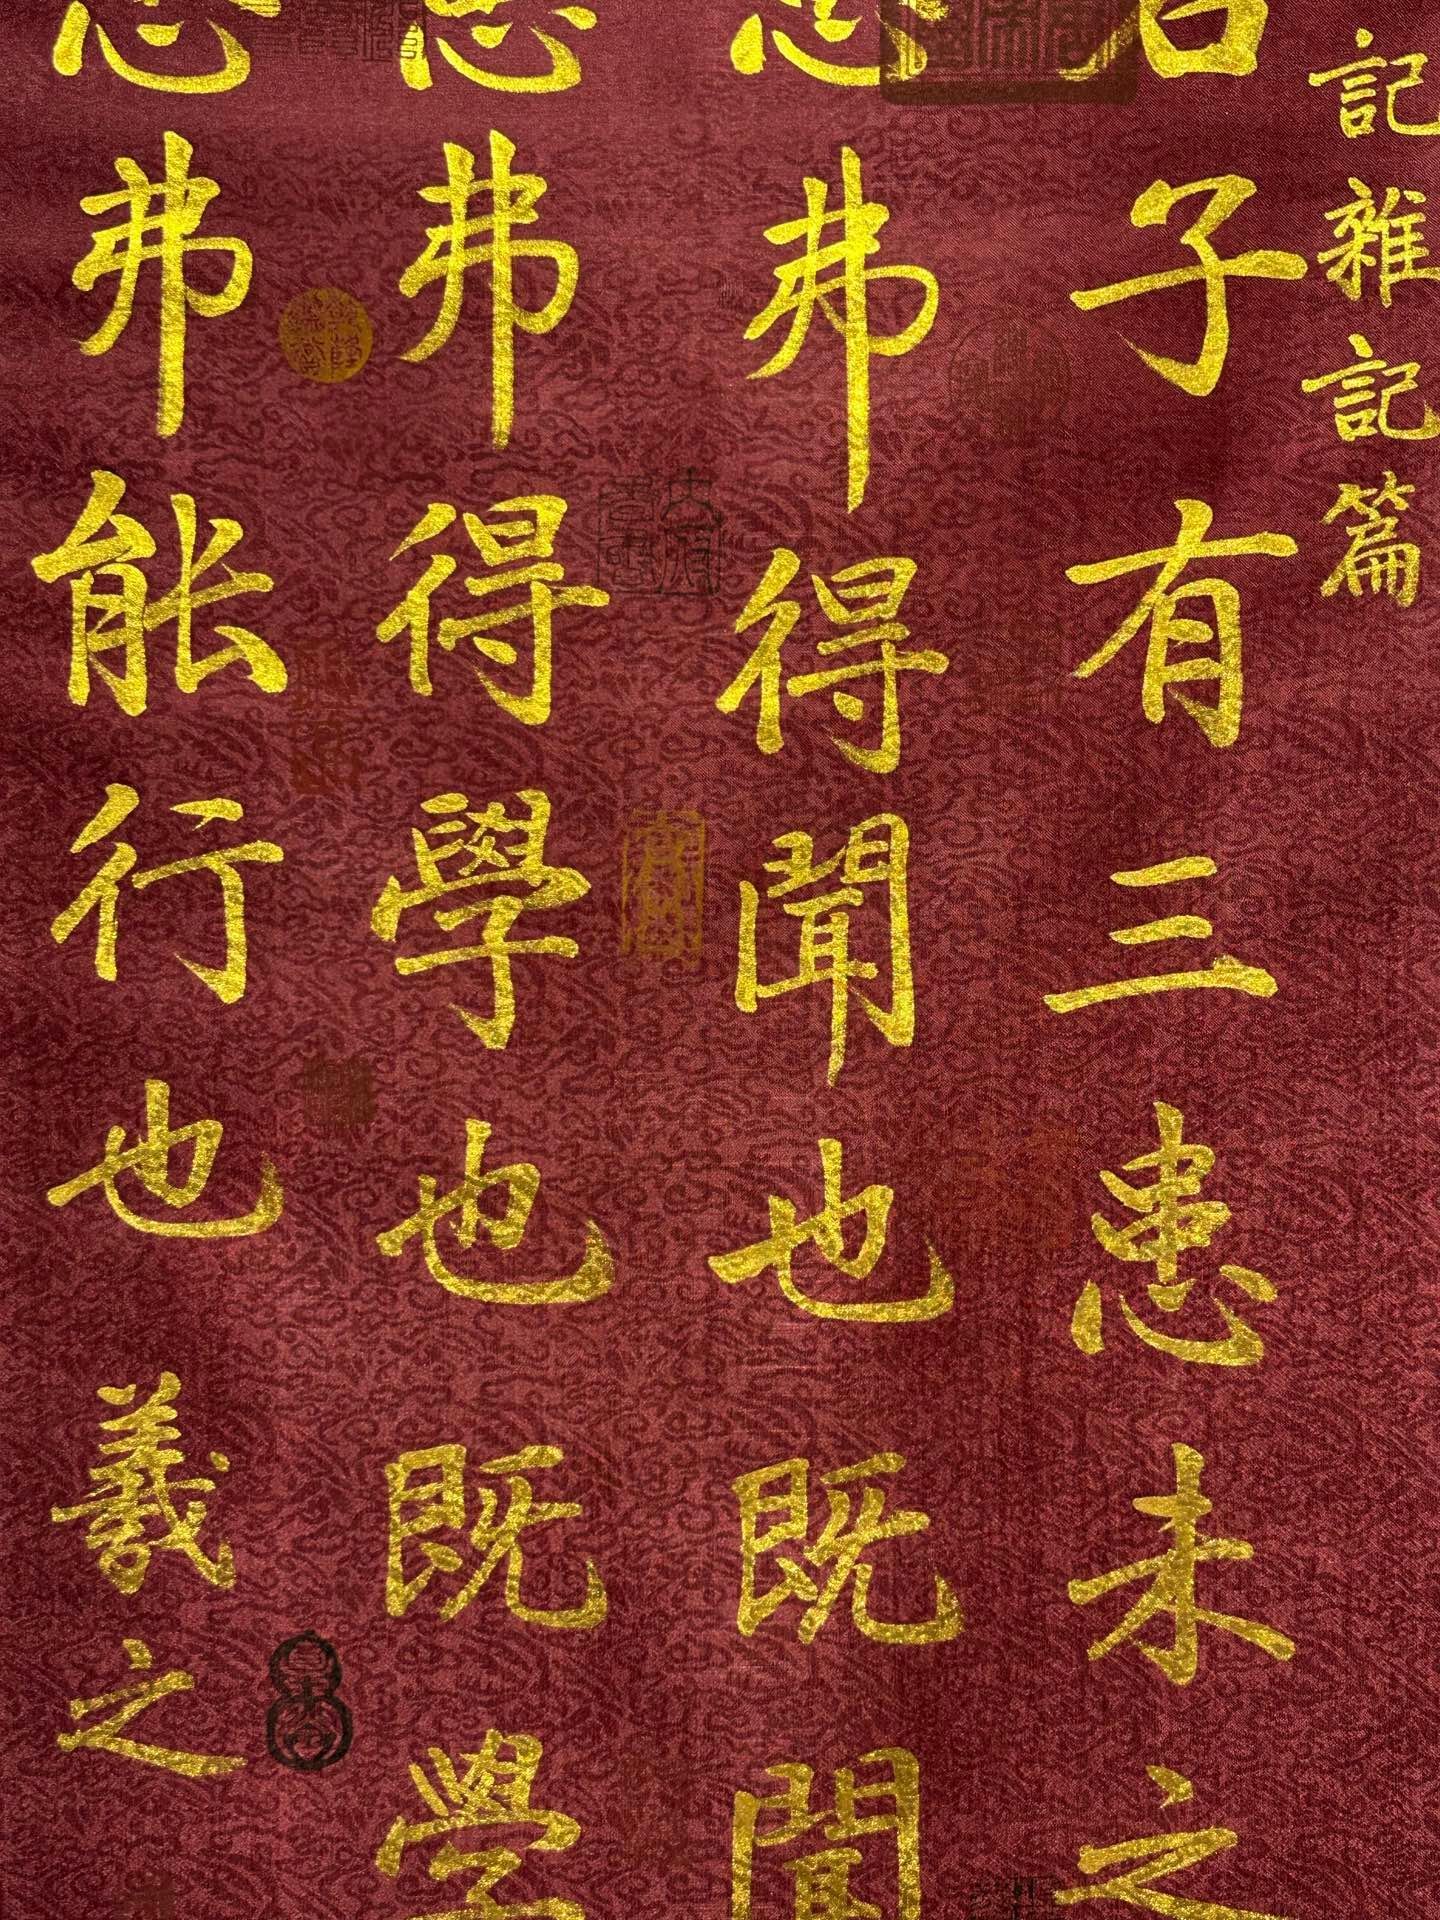 記雜記篇
君子有三患未之
患弗得聞也既聞
患弗得學也既學
患弗能行也羲之